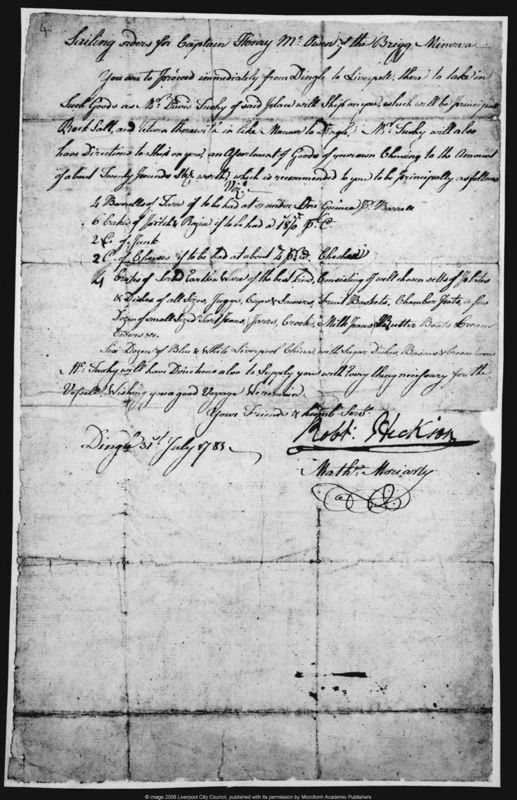 4
Sailing orders for Captain Henry Mc Owen of the Brigg Minerva
You are to proceed immediately from Dingle to Liverpole there to take in
Such Goods as Mr. David Tuohy of said place will Ship on you, which will be principally
Rock Salt, and return therewith in like Manner to Dingle. Mr. Tuohy will also
have Directions to Ship on you, an assortment of Goods of your own Chusing to the Amount
of about Twenty pounds Stg. worth, which is recommended to you to be principally as follows
Vizt.
4 Barrells of if to be had at or under One Guinea pr. Barrell
6 of Pitch & if to be had a 18/ pr. C
2 C. of Junk
2 C. of Cheeses if to be had at about
4 Crates of Earthen Ware of the best kind, Consisting of well chosen setts of plates
& Dishes of all Sizes, Juggs, Cups & Saucers Fruit Baskets, Chamber Potts, a few
Dozen of small Sized Jarrs, Crocks, Milk pans, Butter Boats, Cream
Ewers &c.
Six Dozen of Blue & White Liverpool China with Sugar Dishes Basons & Cream Ewers
Mr. Tuohy will have Directions also to Supply you with every thing necessary for the
Vessell. Wishing you a good Voyage We remain
Your Friends & humb. Servts.
Robt. Hickson
Dingle 31st. July 1783
Mathw. Moriarty
© image 2006 Liverpool City Council, published with its permission by Microform Academic Publishers